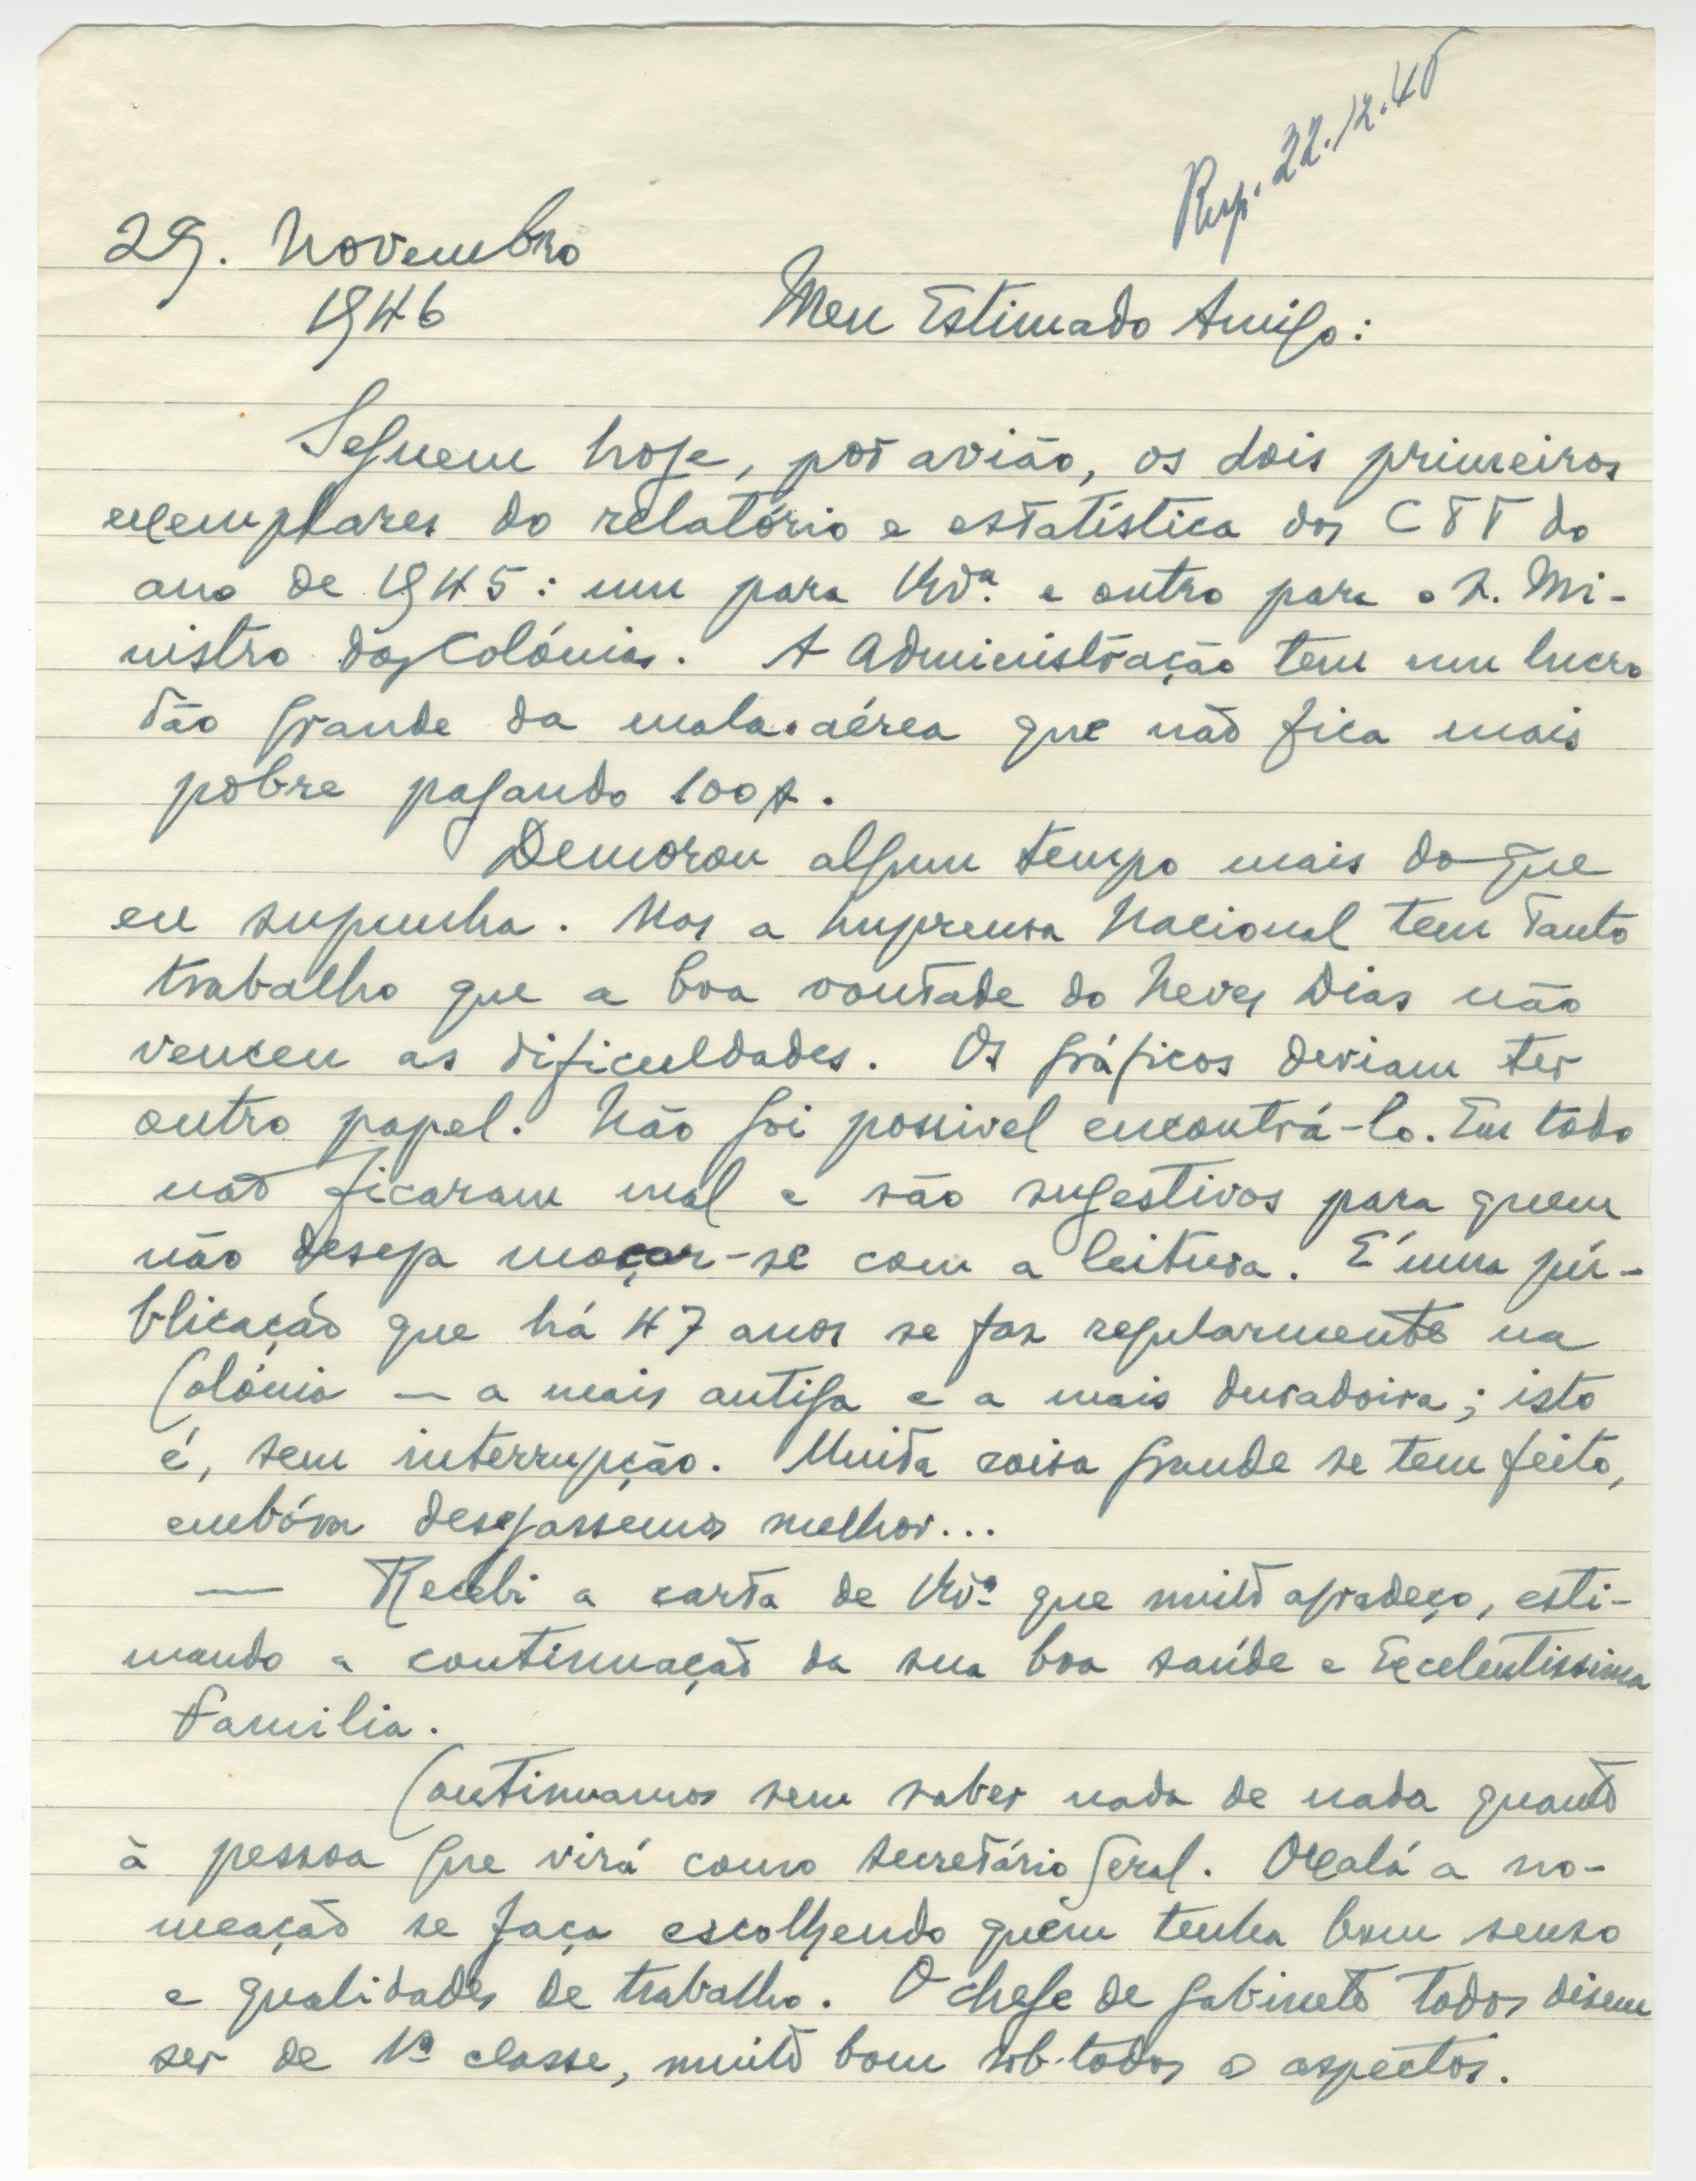 Resp. 22.12.46
29. Novembro
1946
Meu Estimado Amigo:
Seguem hoje, por avião, os dois primeiros
exemplares do relatório e estatística dos CTT do
ano de 1945: um para V. Exª. e outro para o S. Mi-
nistro das Colónias. A Administração tem um lucro
tão grande da mala aérea que não fica mais
pobre pagando 100$.
Demorou algum tempo mais do que
eu supunha. Mas a Imprensa Nacional tem tanto
trabalho que a boa vontade do Neves Dias não
venceu as dificuldades. Os gráficos deviam ter
outro papel. Não foi possivel encontrá-lo. Em todo
não ficaram mal e são sugestivos para quem
não deseja maçar-se com a leitura. É uma pú-
blicação que há 47 anos se faz regularmente na
Colónia — a mais antiga e a mais duradoira; isto
é, sem interrupção. Muita coisa grande se tem feito,
embóra desejassemos melhor...
— Recebi a carta de V. Exª que muito agradeço, esti-
mando a continuação da sua boa saúde e Excelentissima
Familia.
Continuamos sem saber nada de nada quanto
à pessoa que virá como secretário geral. Oxalá a no-
meação se faça escolhendo quem tenha bom senso
e qualidades de trabalho. O chefe de gabinete todos dizem
ser de 1ª classe, muito bom sob todos os aspectos.